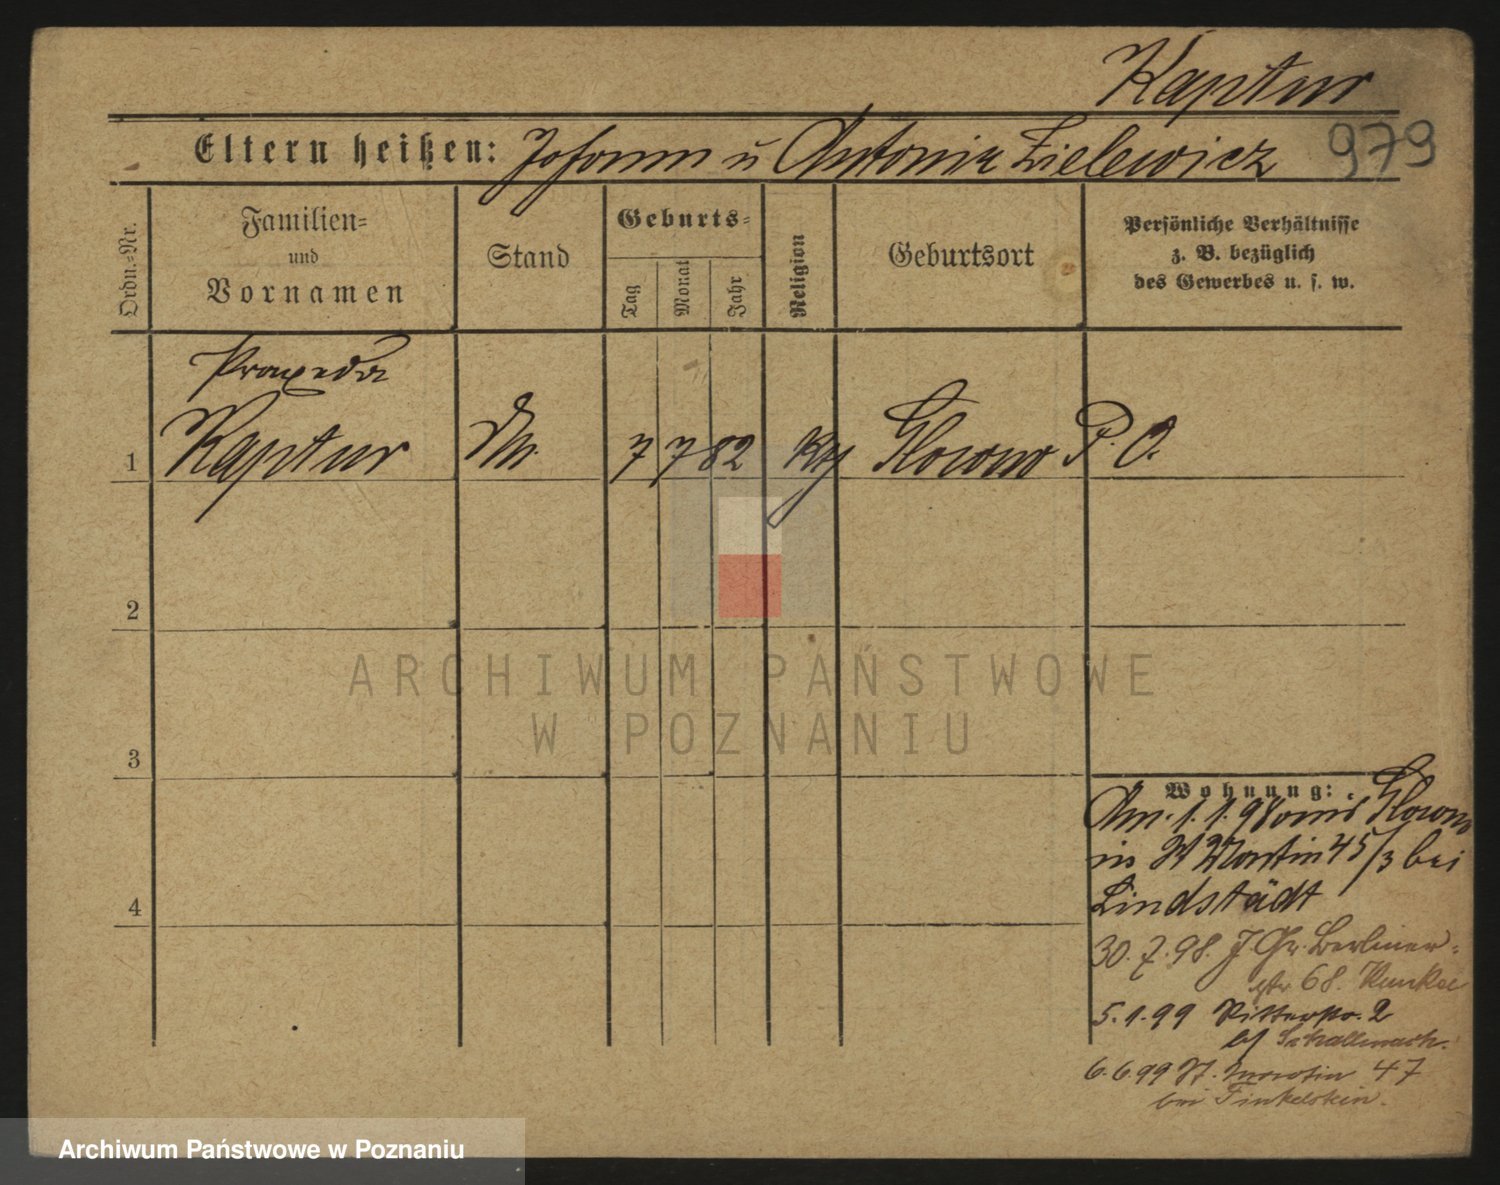 Kaptur
Eltern heißen: Johann u Antonie Zielewicz 979
Ordn.-Nr.
Familien-
und
Vornamen
Stand
Geburts-
Tag
Monat
Jahr
Religion
Geburtsort
Persönliche Verhältnisse
z. B. bezüglich
des Gewerbes u. s. w.
Praxeda
1 Kaptur 7 7 82 Glowno P. O.
2
3
4
Wohnung:
1.1.98 aus Glowno
in St Martin 45/3 bei
Lindstädt
30.7.98. Gr. Berliner-
str 68.
5.1.99 Ritterstr. 2
6.6.99 St. Martin 47
bei Finkelstein.
ARCHIWUM PAŃSTWOWE
W POZNANIU
Archiwum Państwowe w Poznaniu